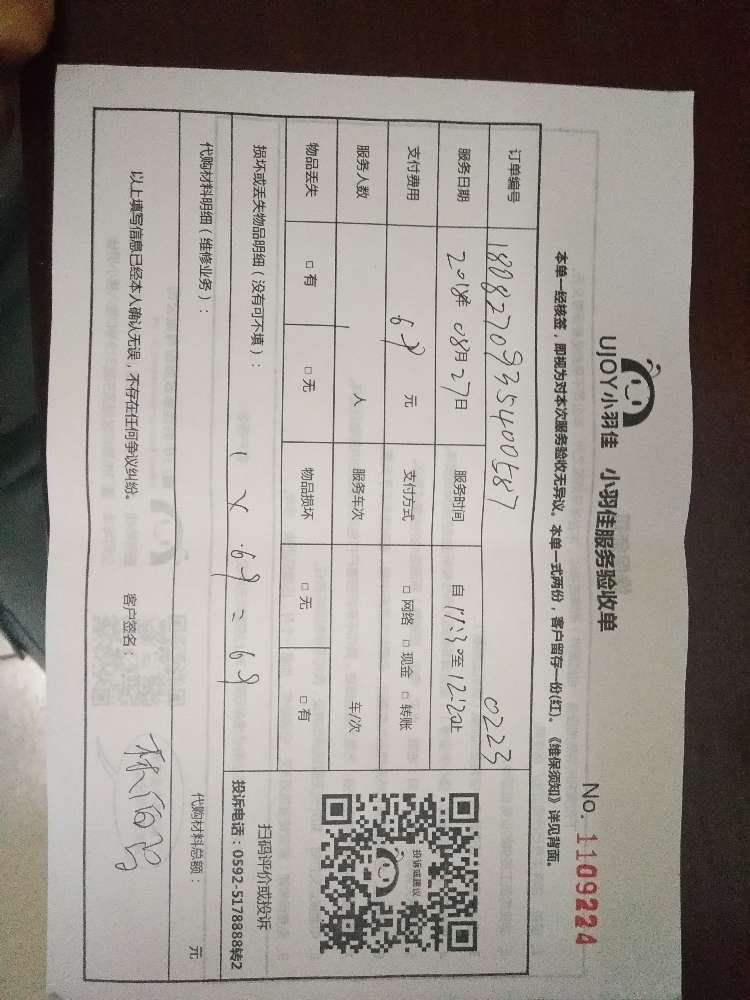 UJOY小羽佳 小羽佳服务验收单
No. 1109224
本单一经核签，即视为对本次服务验收无异议。本单一式两份，客户留存一份(红)。《维保须知》详见背面。
订单编号 18082709354400587 0223
服务日期 2018年08月27日 服务时间 自11:30至12:20止
支付费用 69元 支付方式 □网络 □现金 □转账
服务人数 1人 服务车次 车/次
物品丢失 □有 □无 物品损坏 □无 □有
投诉或建议
扫码评价或投诉
投诉电话：0592-5178888转2
损坏或丢失物品明细（没有可不填）： 1 × 69 = 69
代购材料明细（维修业务）： 代购材料总额： 元
以上填写信息已经本人确认无误，不存在任何争议纠纷。 客户签名：